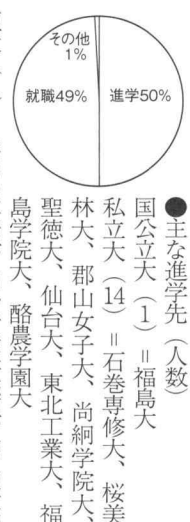 その他
1%
就職49%
進学50%
●主な進学先(人数)
国公立大(1)=福島大
私立大(14)=石巻専修大、桜美
林大、郡山女子大、尚絅学院大、
聖徳大、仙台大、東北工業大、福
島学院大、酪農学園大